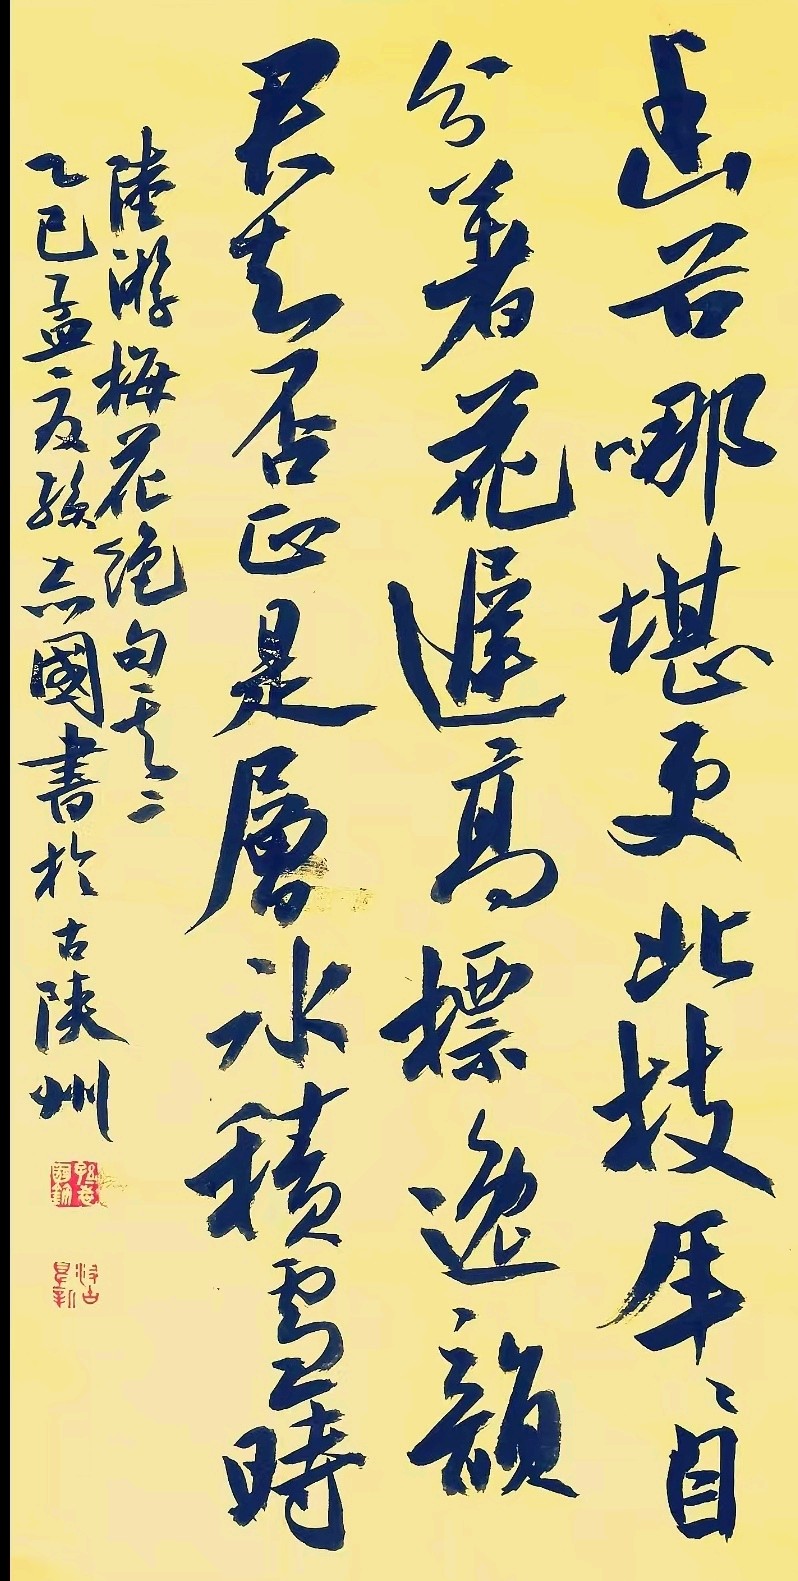 幽谷哪堪更北枝年〻自
分著花遲高標逸韻
君知否正是層冰積雪時
陸游梅花絕句其二
乙巳孟夏孫志國書於古陝州